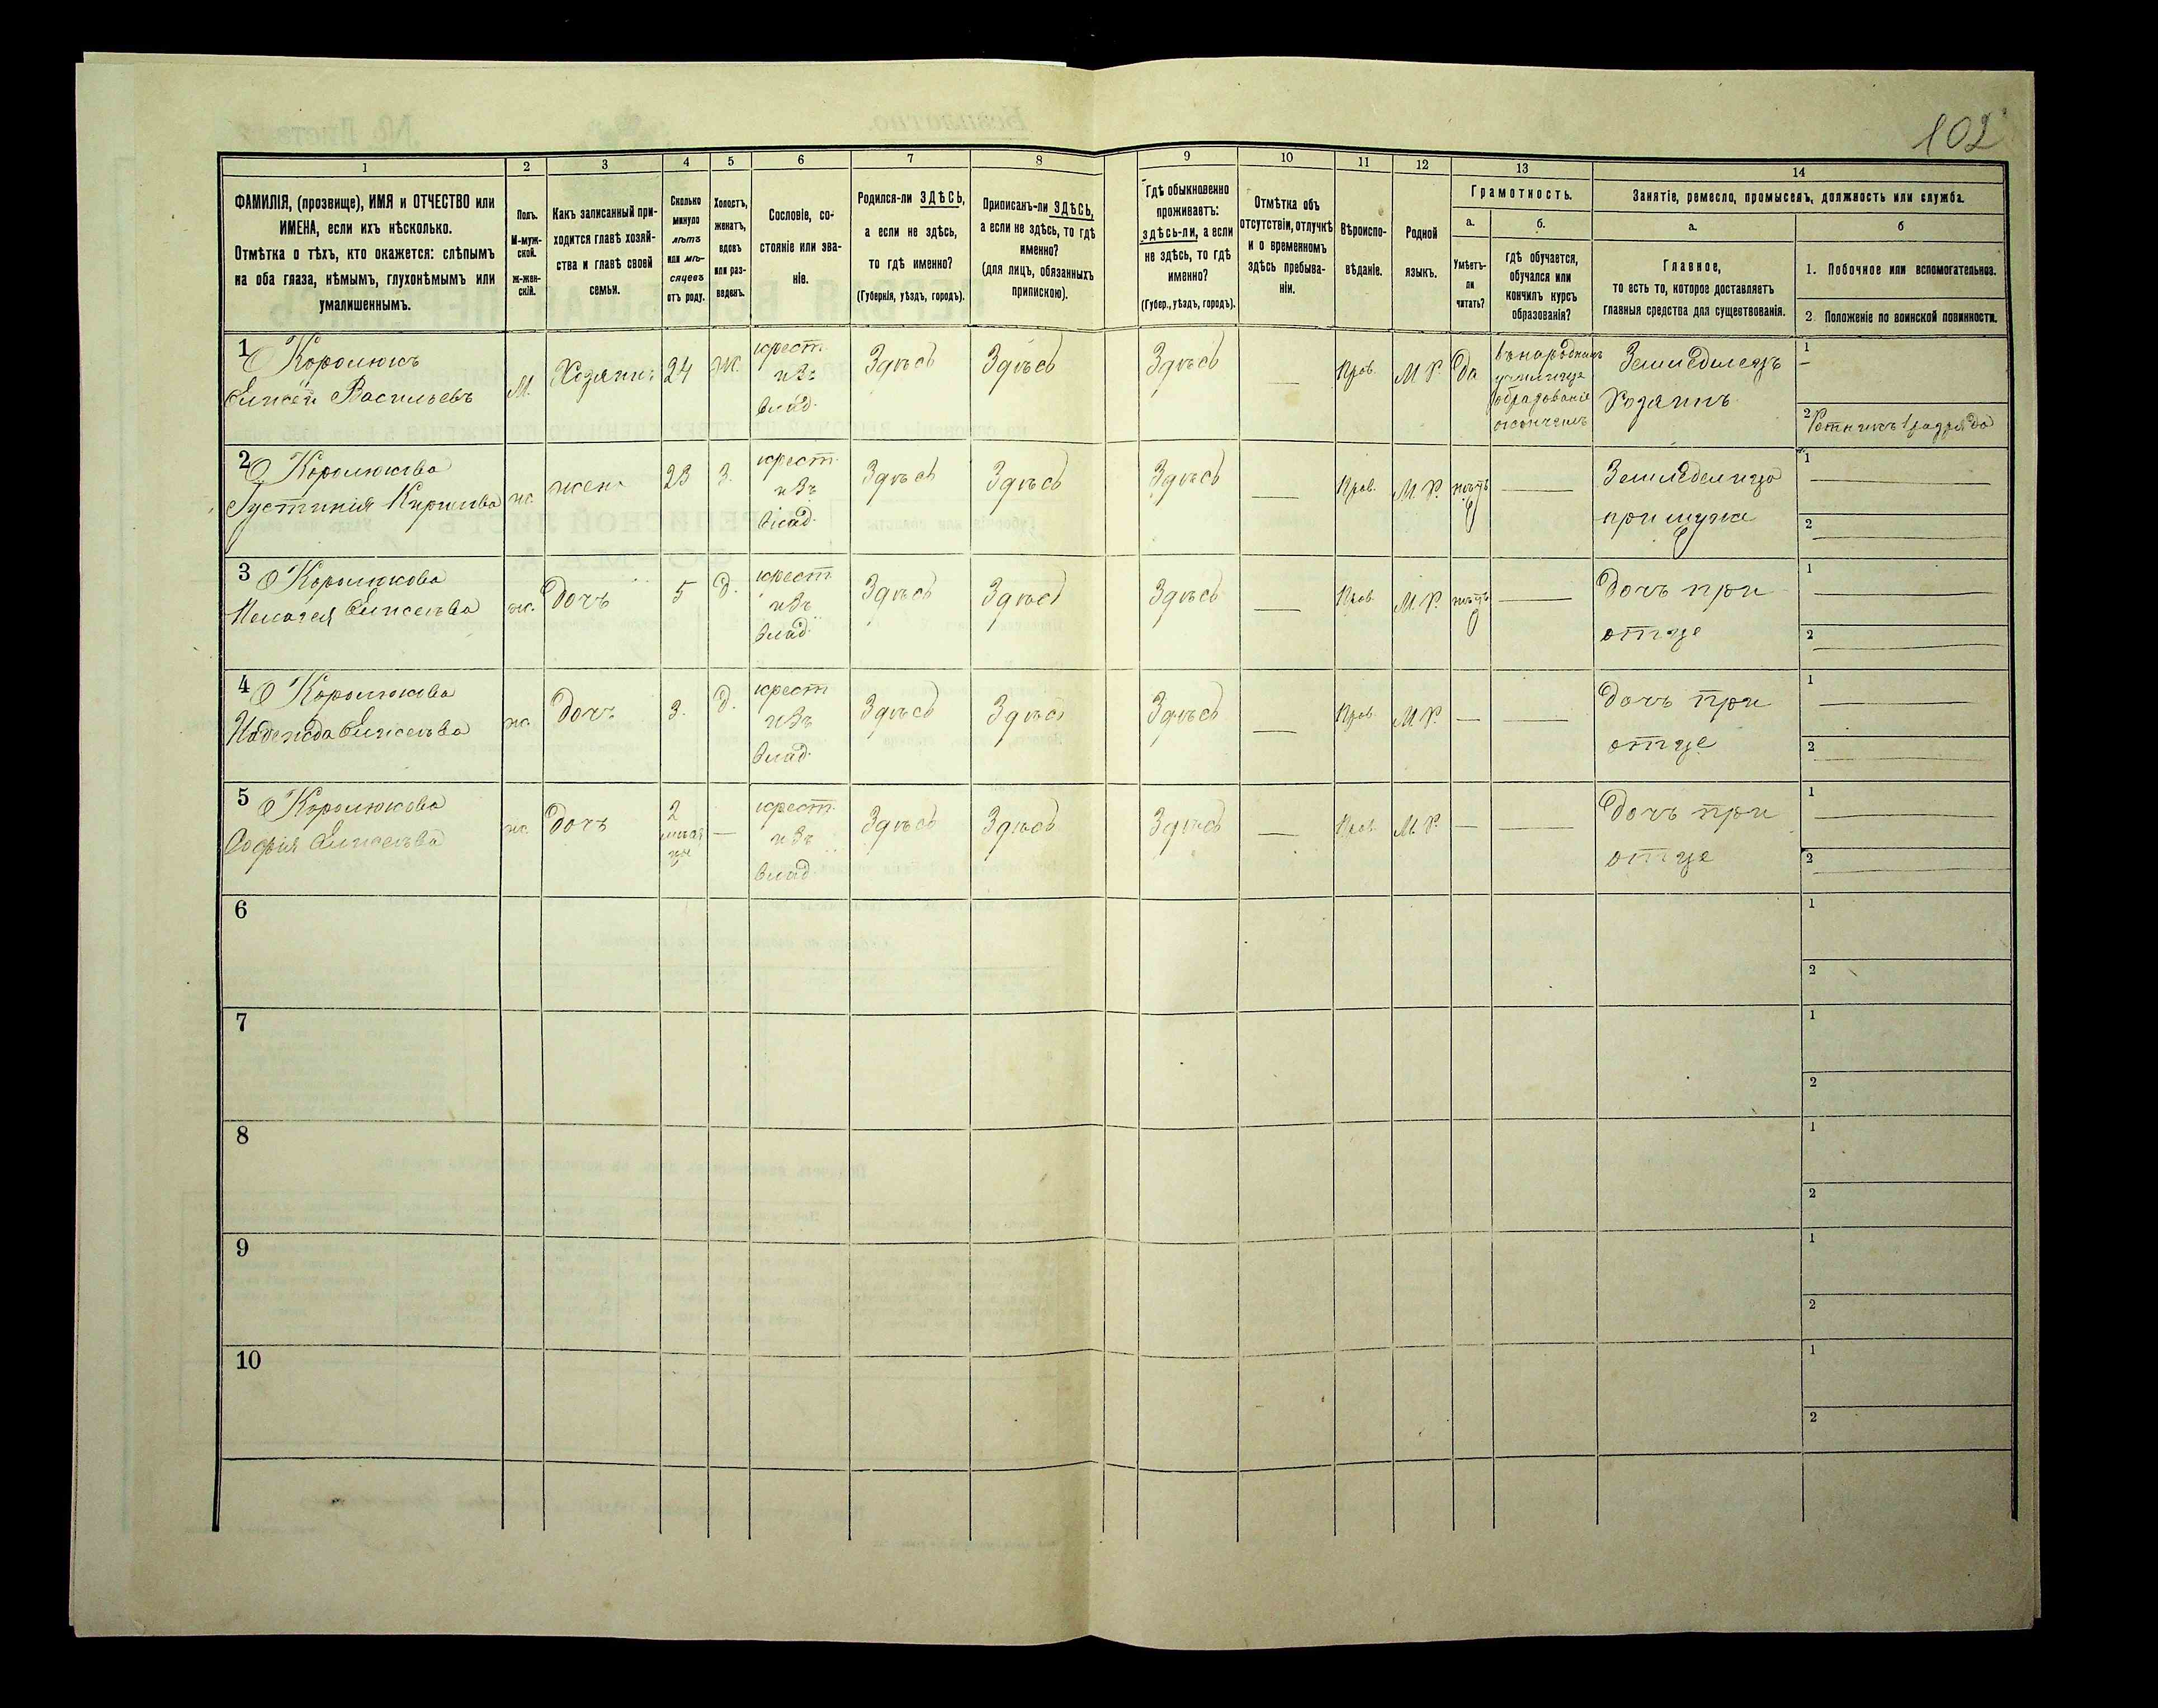 102
1
2
3
4
5
6
7
8
9
10
11
12
13
14
ФАМИЛІЯ, (прозвище), ИМЯ и ОТЧЕСТВО или
ИМЕНА, если ихъ нѣсколько.
Отмѣтка о тѣхъ, кто окажется: слѣпымъ
на оба глаза, нѣмымъ, глухонѣмымъ или
умалишеннымъ.
Полъ.
М-муж-
ской.
Ж-жен-
скій.
Какъ записанный при-
ходится главѣ хозяй-
ства и главѣ своей
семьи.
Сколько
минуло
лѣтъ
или мѣ-
сяцевъ
отъ роду.
Холостъ,
женатъ,
вдовъ
или раз-
веденъ.
Сословіе, со-
стояніе или зва-
ніе.
Родился-ли ЗДѢСЬ,
а если не здѣсь,
то гдѣ именно?
(Губернія, уѣздъ, городъ).
Приписанъ-ли ЗДѢСЬ,
а если не здѣсь, то гдѣ
именно?
(для лицъ, обязанныхъ
припискою).
Гдѣ обыкновенно
проживаетъ:
здѣсь-ли, а если
не здѣсь, то гдѣ
именно?
(Губер., уѣздъ, городъ).
Отмѣтка объ
отсутствіи, отлучкѣ
и о временномъ
здѣсь пребыва-
ніи.
Вѣроиспо-
вѣданіе.
Родной
языкъ.
Грамотность.
а.
б.
Умѣетъ-
ли
читать?
гдѣ обучается,
обучался или
кончилъ курсъ
образованія?
Занятіе, ремесло, промыселъ, должность или служба.
а.
б
Главное,
то есть то, которое доставляетъ
главныя средства для существованія.
1. Побочное или вспомогательное.
2. Положеніе по воинской повинности.
1
Королюкъ
Елисей Васильевъ
М.
Хозяинъ
24
Ж.
крест.
изъ
влад.
Здѣсь
Здѣсь
Здѣсь
—
Прав.
М. Р.
да
въ народномъ
училище
образованіе
окончилъ
Земледелецъ
Хозяинъ
1
—
2 Ратникъ 1 разряда
2
Королюкова
Іустинія Кирилова
ж.
жена
23
З.
крест.
изъ
влад.
Здѣсь
Здѣсь
Здѣсь
—
Прав.
М. Р.
нѣтъ
—
Земледелица
при муже
1 —
2 —
3
Королюкова
Пелагея Елисеева
ж.
дочь
5
д.
крест.
изъ
влад.
Здѣсь
Здѣсь
Здѣсь
—
Прав.
М. Р.
нѣтъ
—
дочь при
отце
1 —
2 —
4
Королюкова
Надежда Елисеева
ж.
дочь
3.
д.
крест
изъ
влад.
Здѣсь
Здѣсь
Здѣсь
—
Прав.
М. Р.
—
—
дочь при
отце
1 —
2 —
5
Королюкова
Софія Елисеева
ж.
дочь
2
—
крест.
изъ
влад.
Здѣсь
Здѣсь
Здѣсь
—
Прав.
М. Р.
—
—
дочь при
отце
1 —
2 —
6
1
2
7
1
2
8
1
2
9
1
2
10
1
2